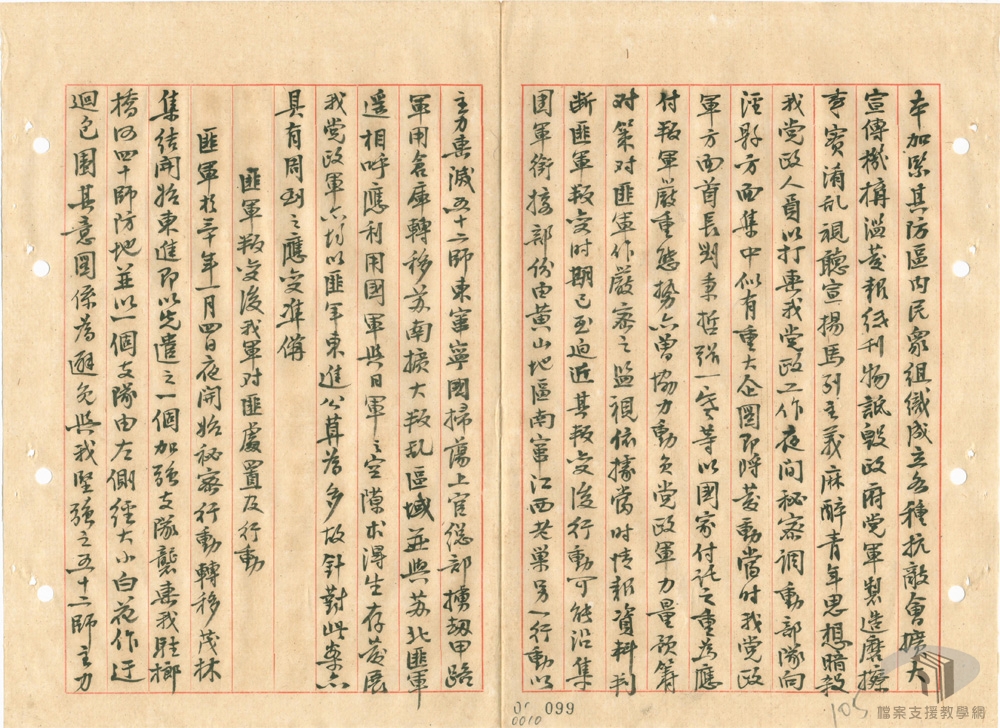 本加緊其防區內民眾組織成立各種抗敵會擴大
宣傳機構濫發報紙刊物詆毀政府党軍製造磨擦
事實淆乱視聽宣揚馬列主義麻醉青年思想暗殺
我党政人員以打擊我党政工作夜间秘密調動部隊向
涇縣方面集中似有重大企圖即將發動當时我党政
軍方面首長劉秉哲張一寒等以國家付託之重為應
付叛軍嚴重態勢亦曾協力動員党政軍力量預籌
对策对匪軍作嚴密之監視依據當时情報資料判
断匪軍叛变时期已至迫近其叛变後行動可能沿集
团軍銜接部份由黄山地區南窜江西老巢另一行動以
主力東滅五十二師東窜寧國掃蕩上官總部擄刼甲路
軍用倉庫轉移苏南擴大叛乱區域並與苏北匪軍
遥相呼應利用國軍與日軍之空隙求得生存發展
我党政軍亦均以匪軍東進公算為多故針對此案亦
具有周到之應变準備
匪軍叛变後我軍对匪處置及行動
匪軍於三十年一月四日夜開始秘密行動轉移茂林
集結開始東進即以先遣之一個加强支隊襲擊我駐榔
橋的四十師防地並以一個支隊由左側經大小白花作迂
迴包圍其意圖係為避免與我堅强之五十二師主力
099
0010
105
檔案支援教學網